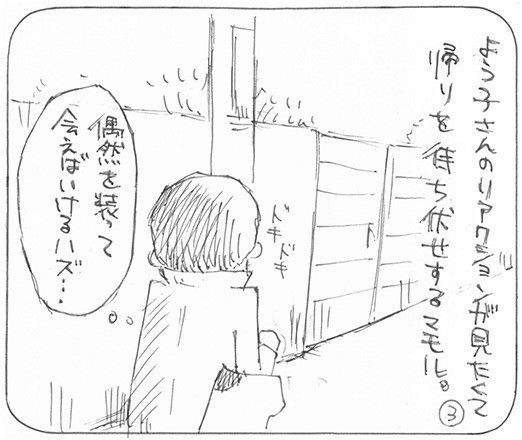 よう子さんのリアクションが見たくて
帰りを待ち伏せするマモル。
③
ドキドキ
偶然を装って
会えばいけるハズ…